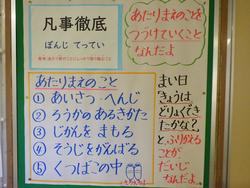 凡事徹底
ぼんじ てってい
あたりまえのことを
つづけていくこと
なんだよ
あたりまえのこと
① あいさつ へんじ
② ろうかのあるきかた
③ じかんを まもる
④ そうじをがんばる
⑤ くつばこの中
まい日
「きょうは
どりょくでき
たかな?」
と、ふりがえる
ことが
だいじ
なんだよ。